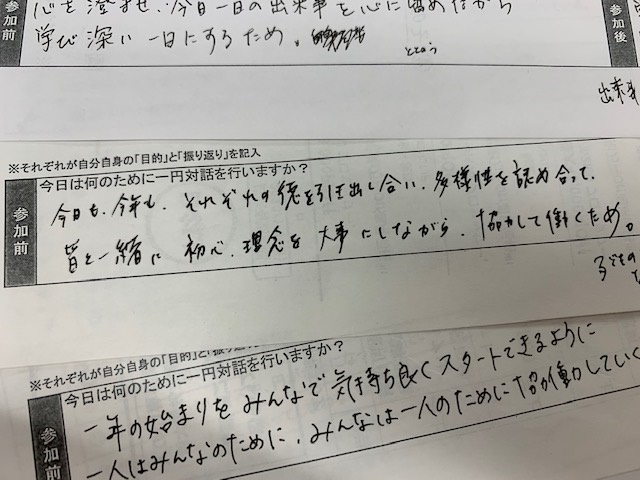 参加前
心を澄ませ、今日一日の出来事を心に留めながら
学び深い一日にするため。
参加後
出来事
※それぞれが自分自身の「目的」と「振り返り」を記入
今日は何のために一円対話を行いますか？
参加前
今日も、今年も、それぞれの徳を引き出し合い、多様性を認め合って、
皆と一緒に初心、理念を大事にしながら、協力して働くため。
子どもの
※それぞれが自分自身の「目的」と「振り返
今日は何のために一円対話を行いますか？
参加前
一年の始まりをみんなで気持ち良くスタートできるように
一人はみんなのために、みんなは一人のために協働していく